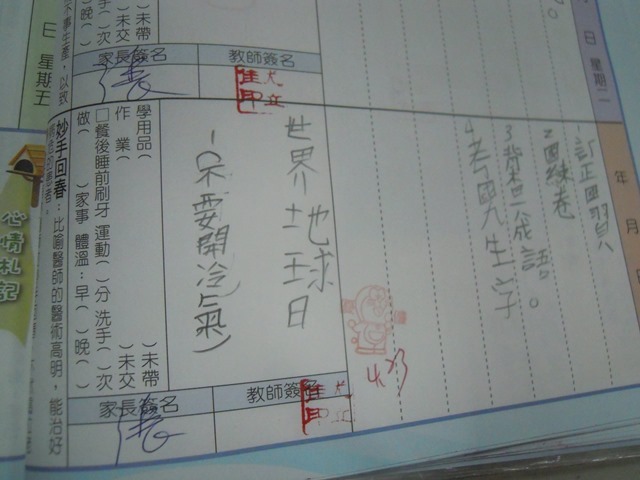 日 星期二
年 月 日
1.訂正國習八
2.國練卷
3.背三成語。
4.考國九生字
4/23
世界地球日
(不要開冷氣)
教師簽名
家長簽名
教師簽名
家長簽名
學用品( )未帶
作 業( )未交
□餐後睡前刷牙 運動( )分 洗手( )次
做( )家事 體溫：早( )晚( )
妙手回春：比喻醫師的醫術高明，能治好
)未帶
)未交
手( )次
)晚( )
不事生產，以致
日 星期五
心情札記